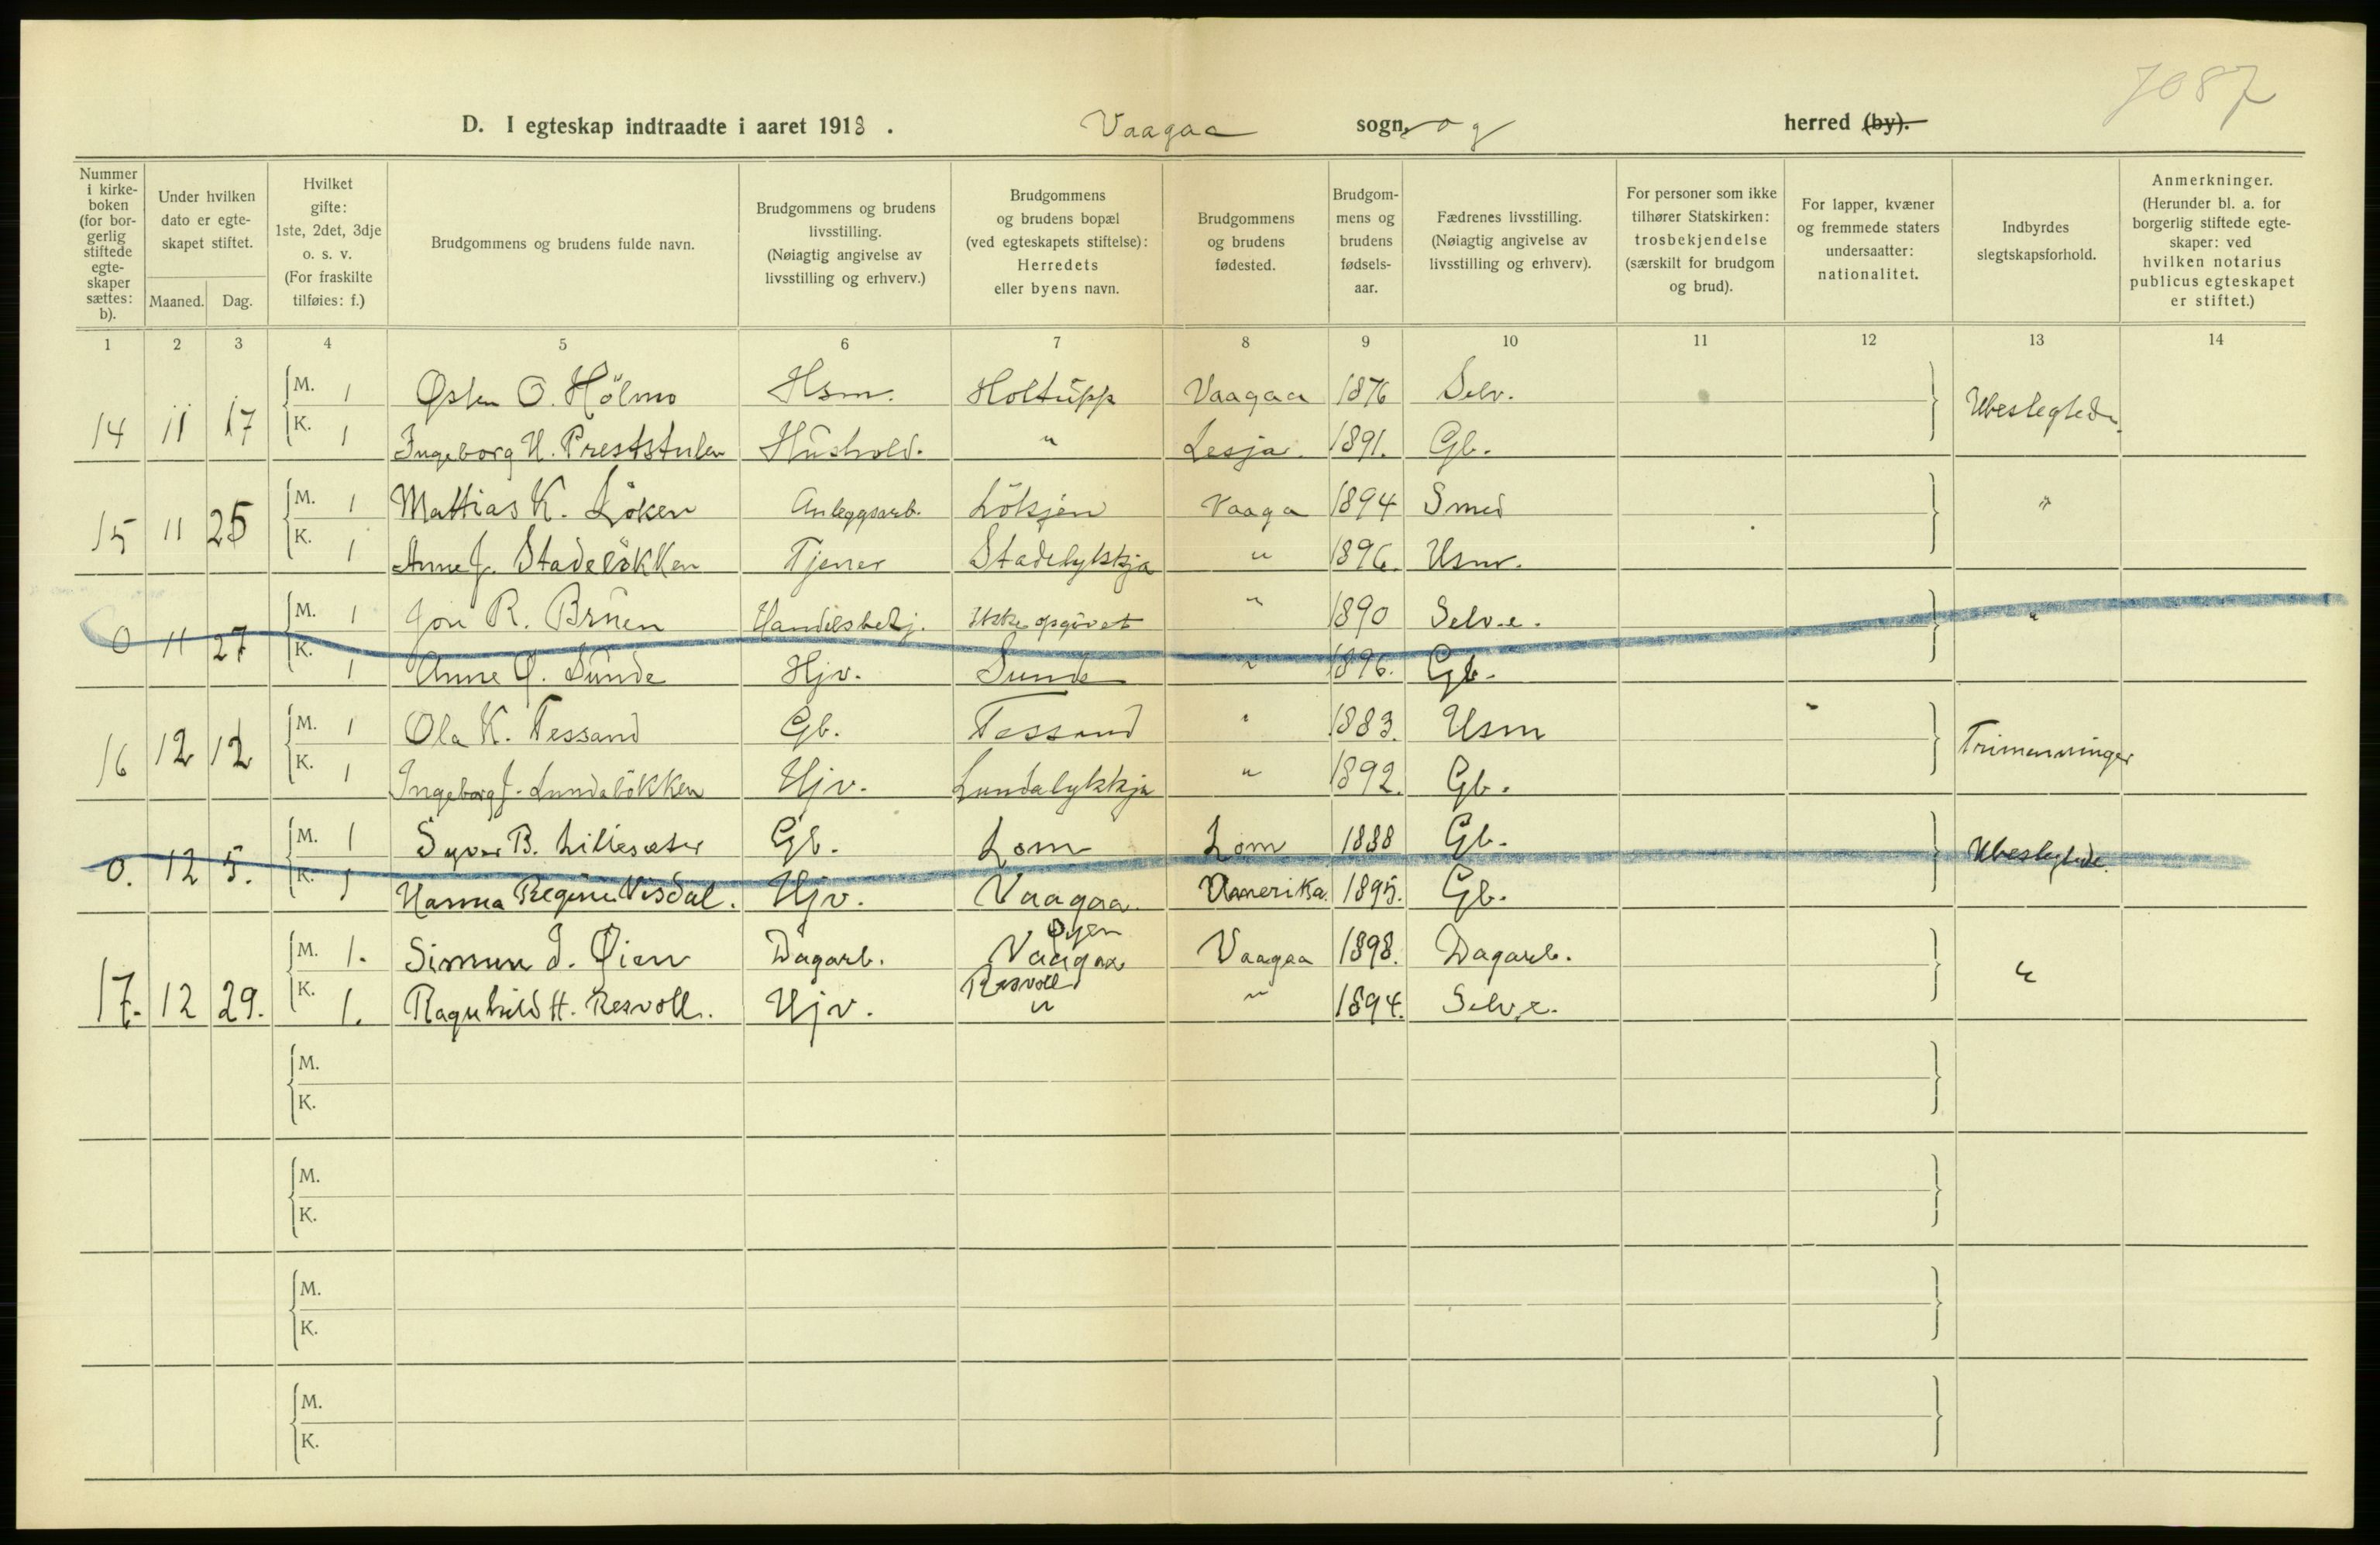 7087
D. I egteskap indtraadte i aaret 1918 . Vaagaa sogn, og herred (by).
Nummer i kirke-boken (for bor-gerlig stiftede egte-skaper sættes: b).
Under hvilken dato er egte-skapet stiftet.
Maaned. Dag.
Hvilket gifte: 1ste, 2det, 3dje o. s. v. (For fraskilte tilføies: f.)
Brudgommens og brudens fulde navn.
Brudgommens og brudens livsstilling. (Nøiagtig angivelse av livsstilling og erhverv.)
Brudgommens og brudens bopæl (ved egteskapets stiftelse): Herredets eller byens navn.
Brudgommens og brudens fødested.
Brudgom-mens og brudens fødsels-aar.
Fædrenes livsstilling. (Nøiagtig angivelse av livsstilling og erhverv).
For personer som ikke tilhører Statskirken: trosbekjendelse (særskilt for brudgom og brud).
For lapper, kvæner og fremmede staters undersaatter: nationalitet.
Indbyrdes slegtskapsforhold.
Anmerkninger. (Herunder bl. a. for borgerlig stiftede egte-skaper: ved hvilken notarius publicus egteskapet er stiftet.)
1 2 3 4 5 6 7 8 9 10 11 12 13 14
M. 1 Østen O. Hölmo Hsm. Holtupp Vaagaa 1876 Selv. Ubeslegtede.
14 11 17 K. 1 Ingeborg H. Preststulen Hushold. " Lesja. 1891. Gb.
M. 1 Mattias K. Löken Anleggsarb. Lökjen Vaaga 1894 Smed "
15 11 25 K. 1 Anne J. Stadelökken Tjener Stadelykkja " 1896. Usm.
M. 1 Jon R. Bruen Handelsbetj. Ikke opgivet " 1890 Selv.e. "
0 11 27 K. 1 Anne O. Sunde Hjv. Sunde " 1896. Gb.
M. 1 Ola K. Tessand Gb. Tessand " 1883. Usm Trimenninger
16 12 12 K. 1 Ingeborg J. Lundalökken Hjv. Lundalykkja " 1892. Gb.
M. 1 Syver B. Lillesæter Gb. Lom Lom 1888 Gb. Ubeslegtede.
0. 12 5. K. 1 Hanna Regine Visdal. Hjv. Vaagaa Amerika. 1895. Gb.
Øyen
M. 1. Simen J. Øien Dagarb. Vaagaa Vaagaa 1898. Dagarb. "
Resvoll
17. 12 29. K. 1. Ragnhild H. Resvoll. Hjv. " " 1894. Selv.e.
M.
K.
M.
K.
M.
K.
M.
K.